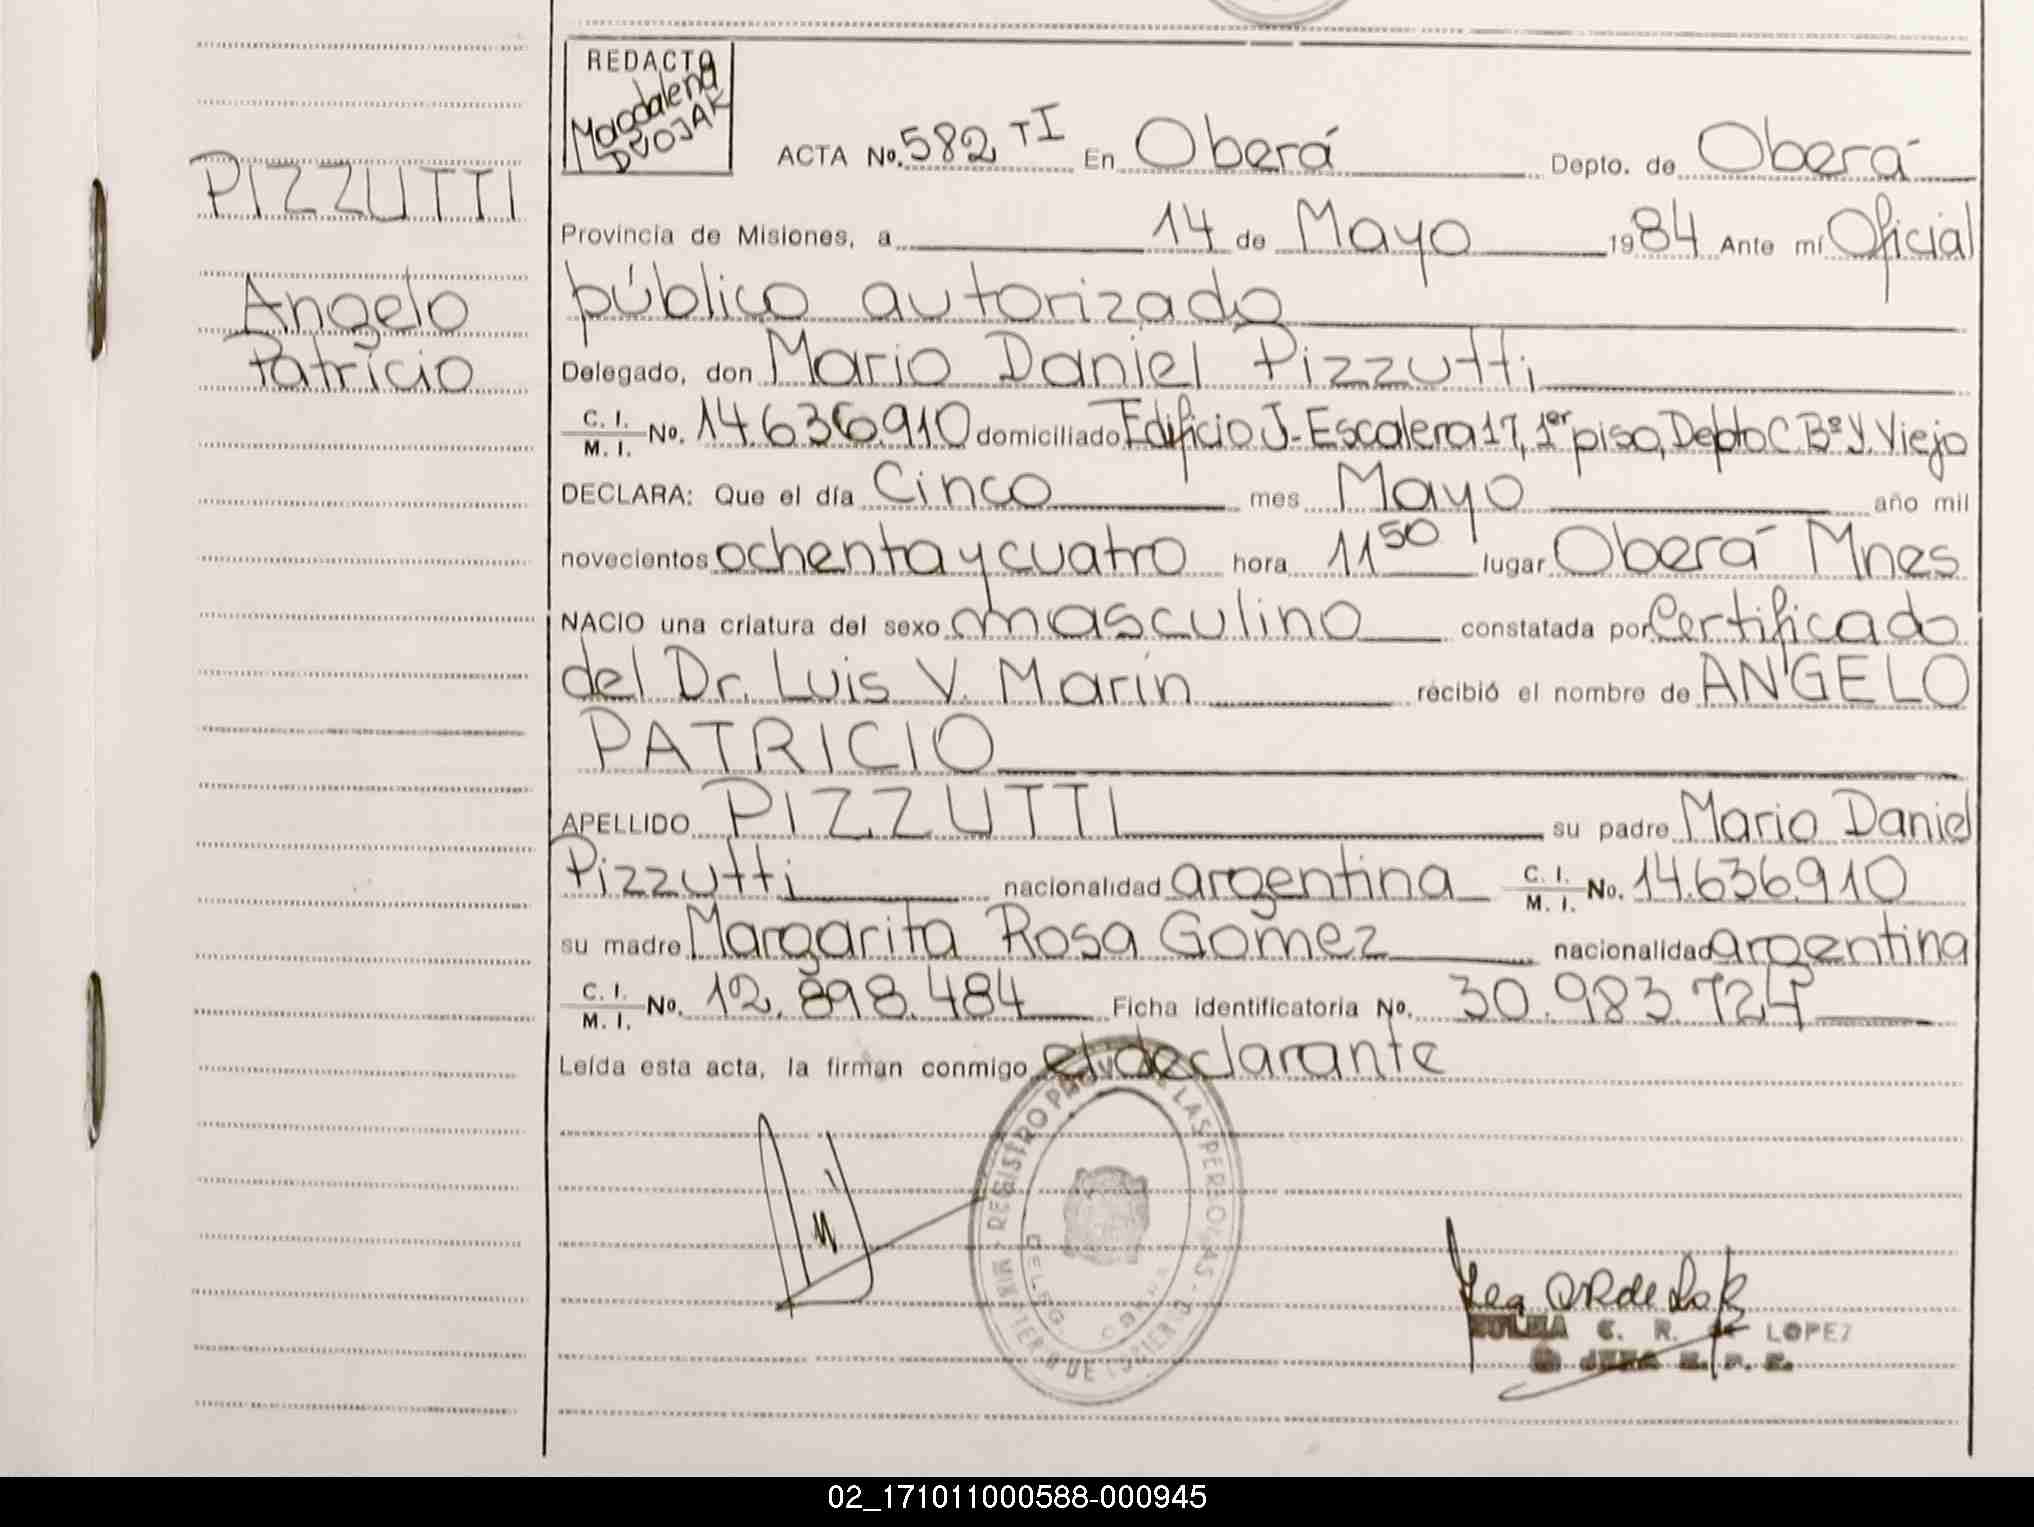 REDACTO
Magdalena
DVOJAK
ACTA No. 582 TI En Oberá Depto. de Oberá
PIZZUTTI
Provincia de Misiones, a 14 de Mayo 1984 Ante mí Oficial
Angelo
público autorizado
Patricio
Delegado, don Mario Daniel Pizzutti
C. I. / M. I. No. 14.636.910 domiciliado Edificio J. Escalera 17, 1er piso, Depto C. Bº Y. Viejo
DECLARA: Que el día Cinco mes Mayo año mil
novecientos ochenta y cuatro hora 11 50 lugar Oberá Mnes
NACIO una criatura del sexo masculino constatada por Certificado
del Dr. Luis V. Marin recibió el nombre de ANGELO
PATRICIO
APELLIDO PIZZUTTI su padre Mario Daniel
Pizzutti nacionalidad argentina C. I. / M. I. No. 14.636.910
su madre Margarita Rosa Gomez nacionalidad argentina
C. I. / M. I. No. 12.898.484 Ficha identificatoria No. 30.983.724
Leída esta acta, la firman conmigo el declarante
REGISTRO LAS PERSONAS
C. R. de LOPEZ
02_171011000588-000945